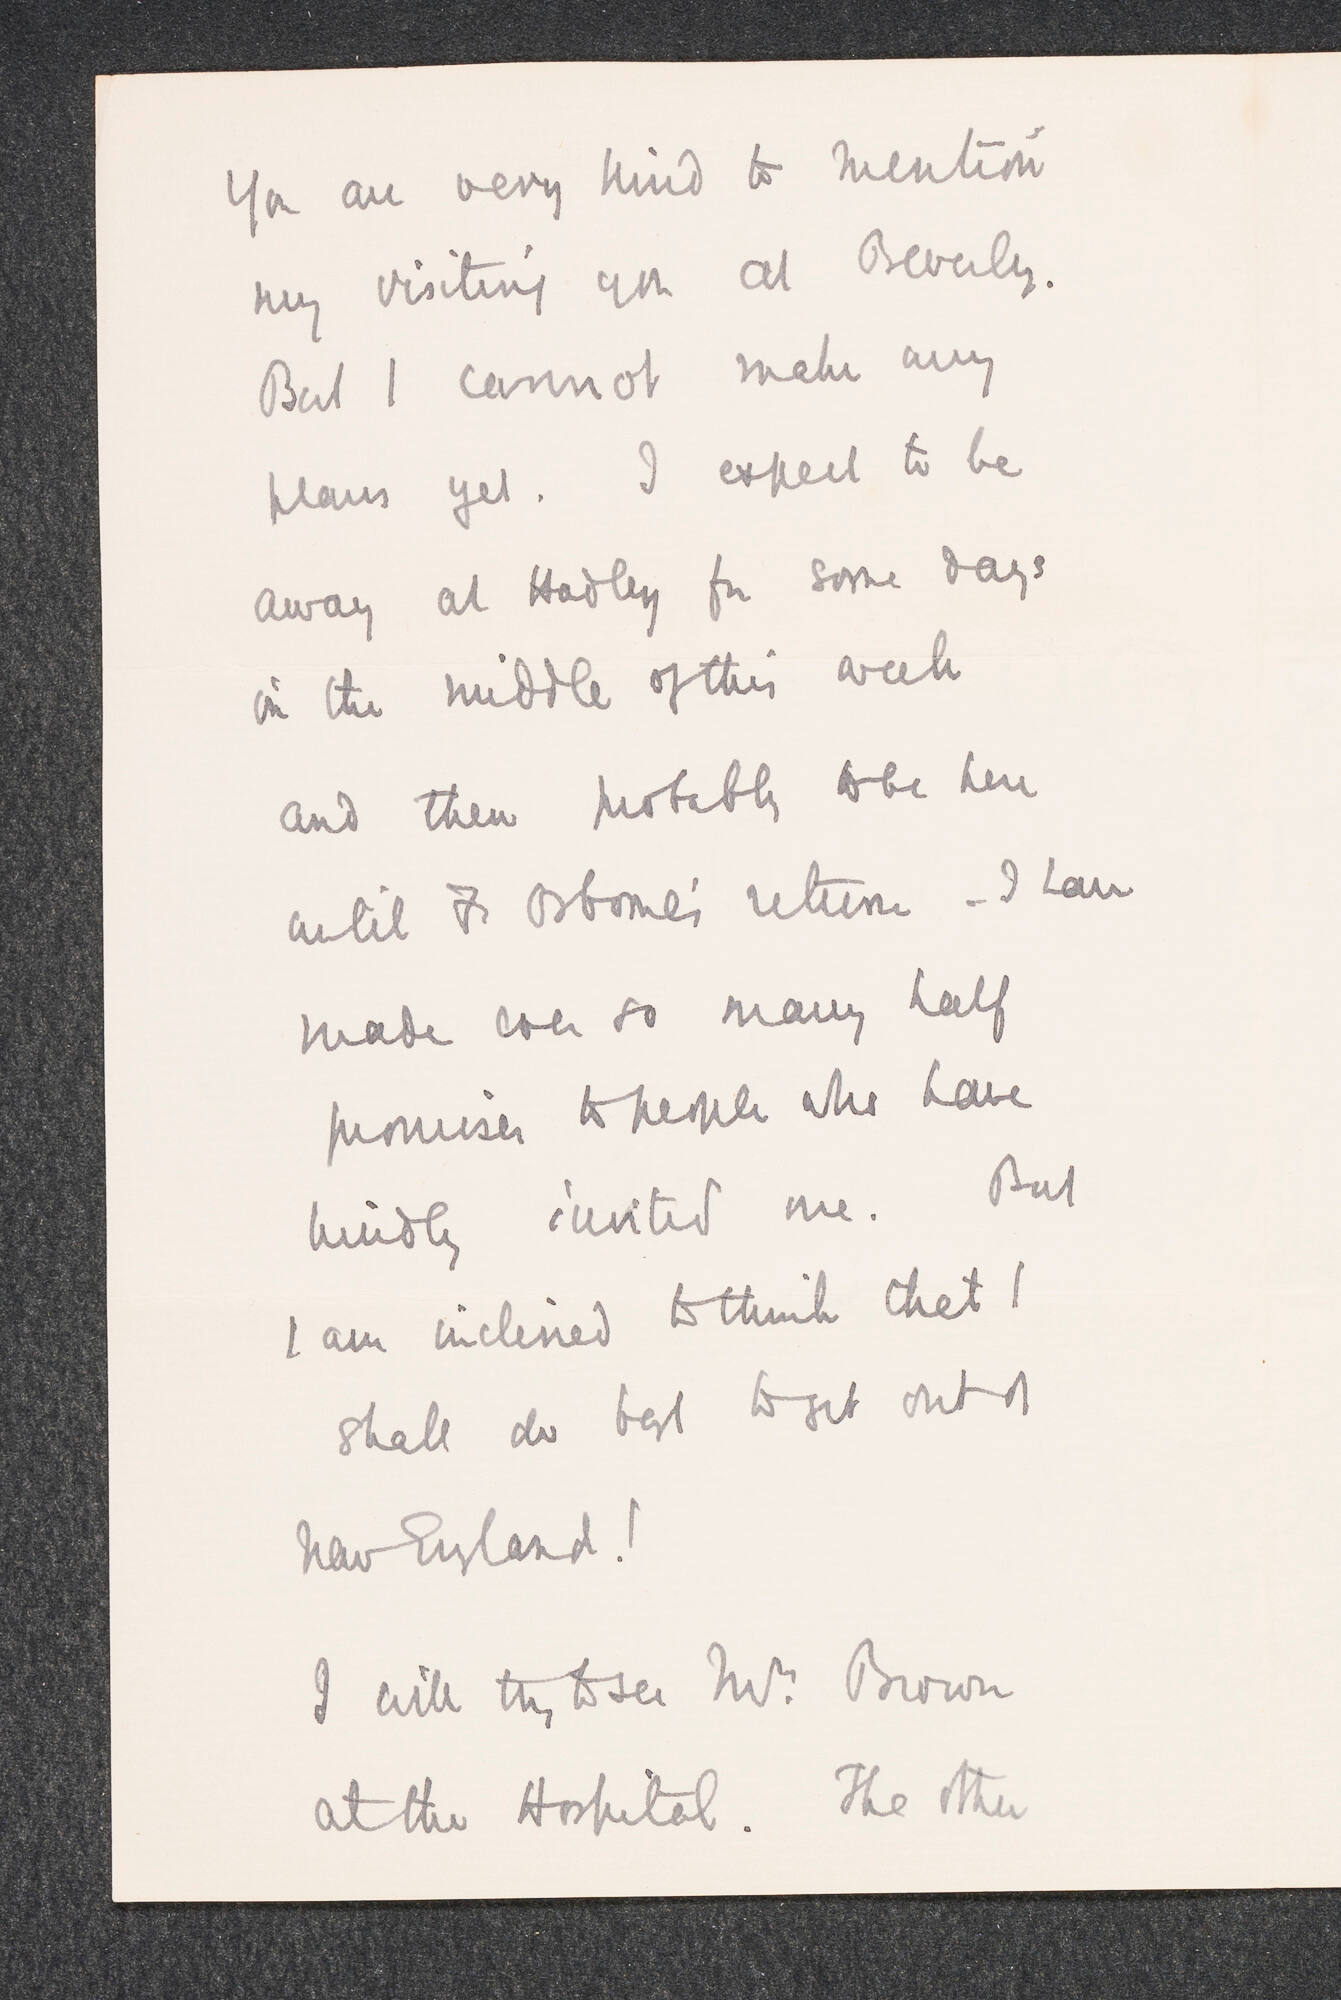 You are very kind to mention
my visiting you at Beverly.
But I cannot make any
plans yet. I expect to be
away at Hadley for some days
in the middle of this week
and then probably to be here
until Fr Osborne's return - I have
made ever so many half
promises to people who have
kindly invited me. But
I am inclined to think that I
shall do best to get out of
New England!
I will try to see Mr. Brown
at the Hospital. The other